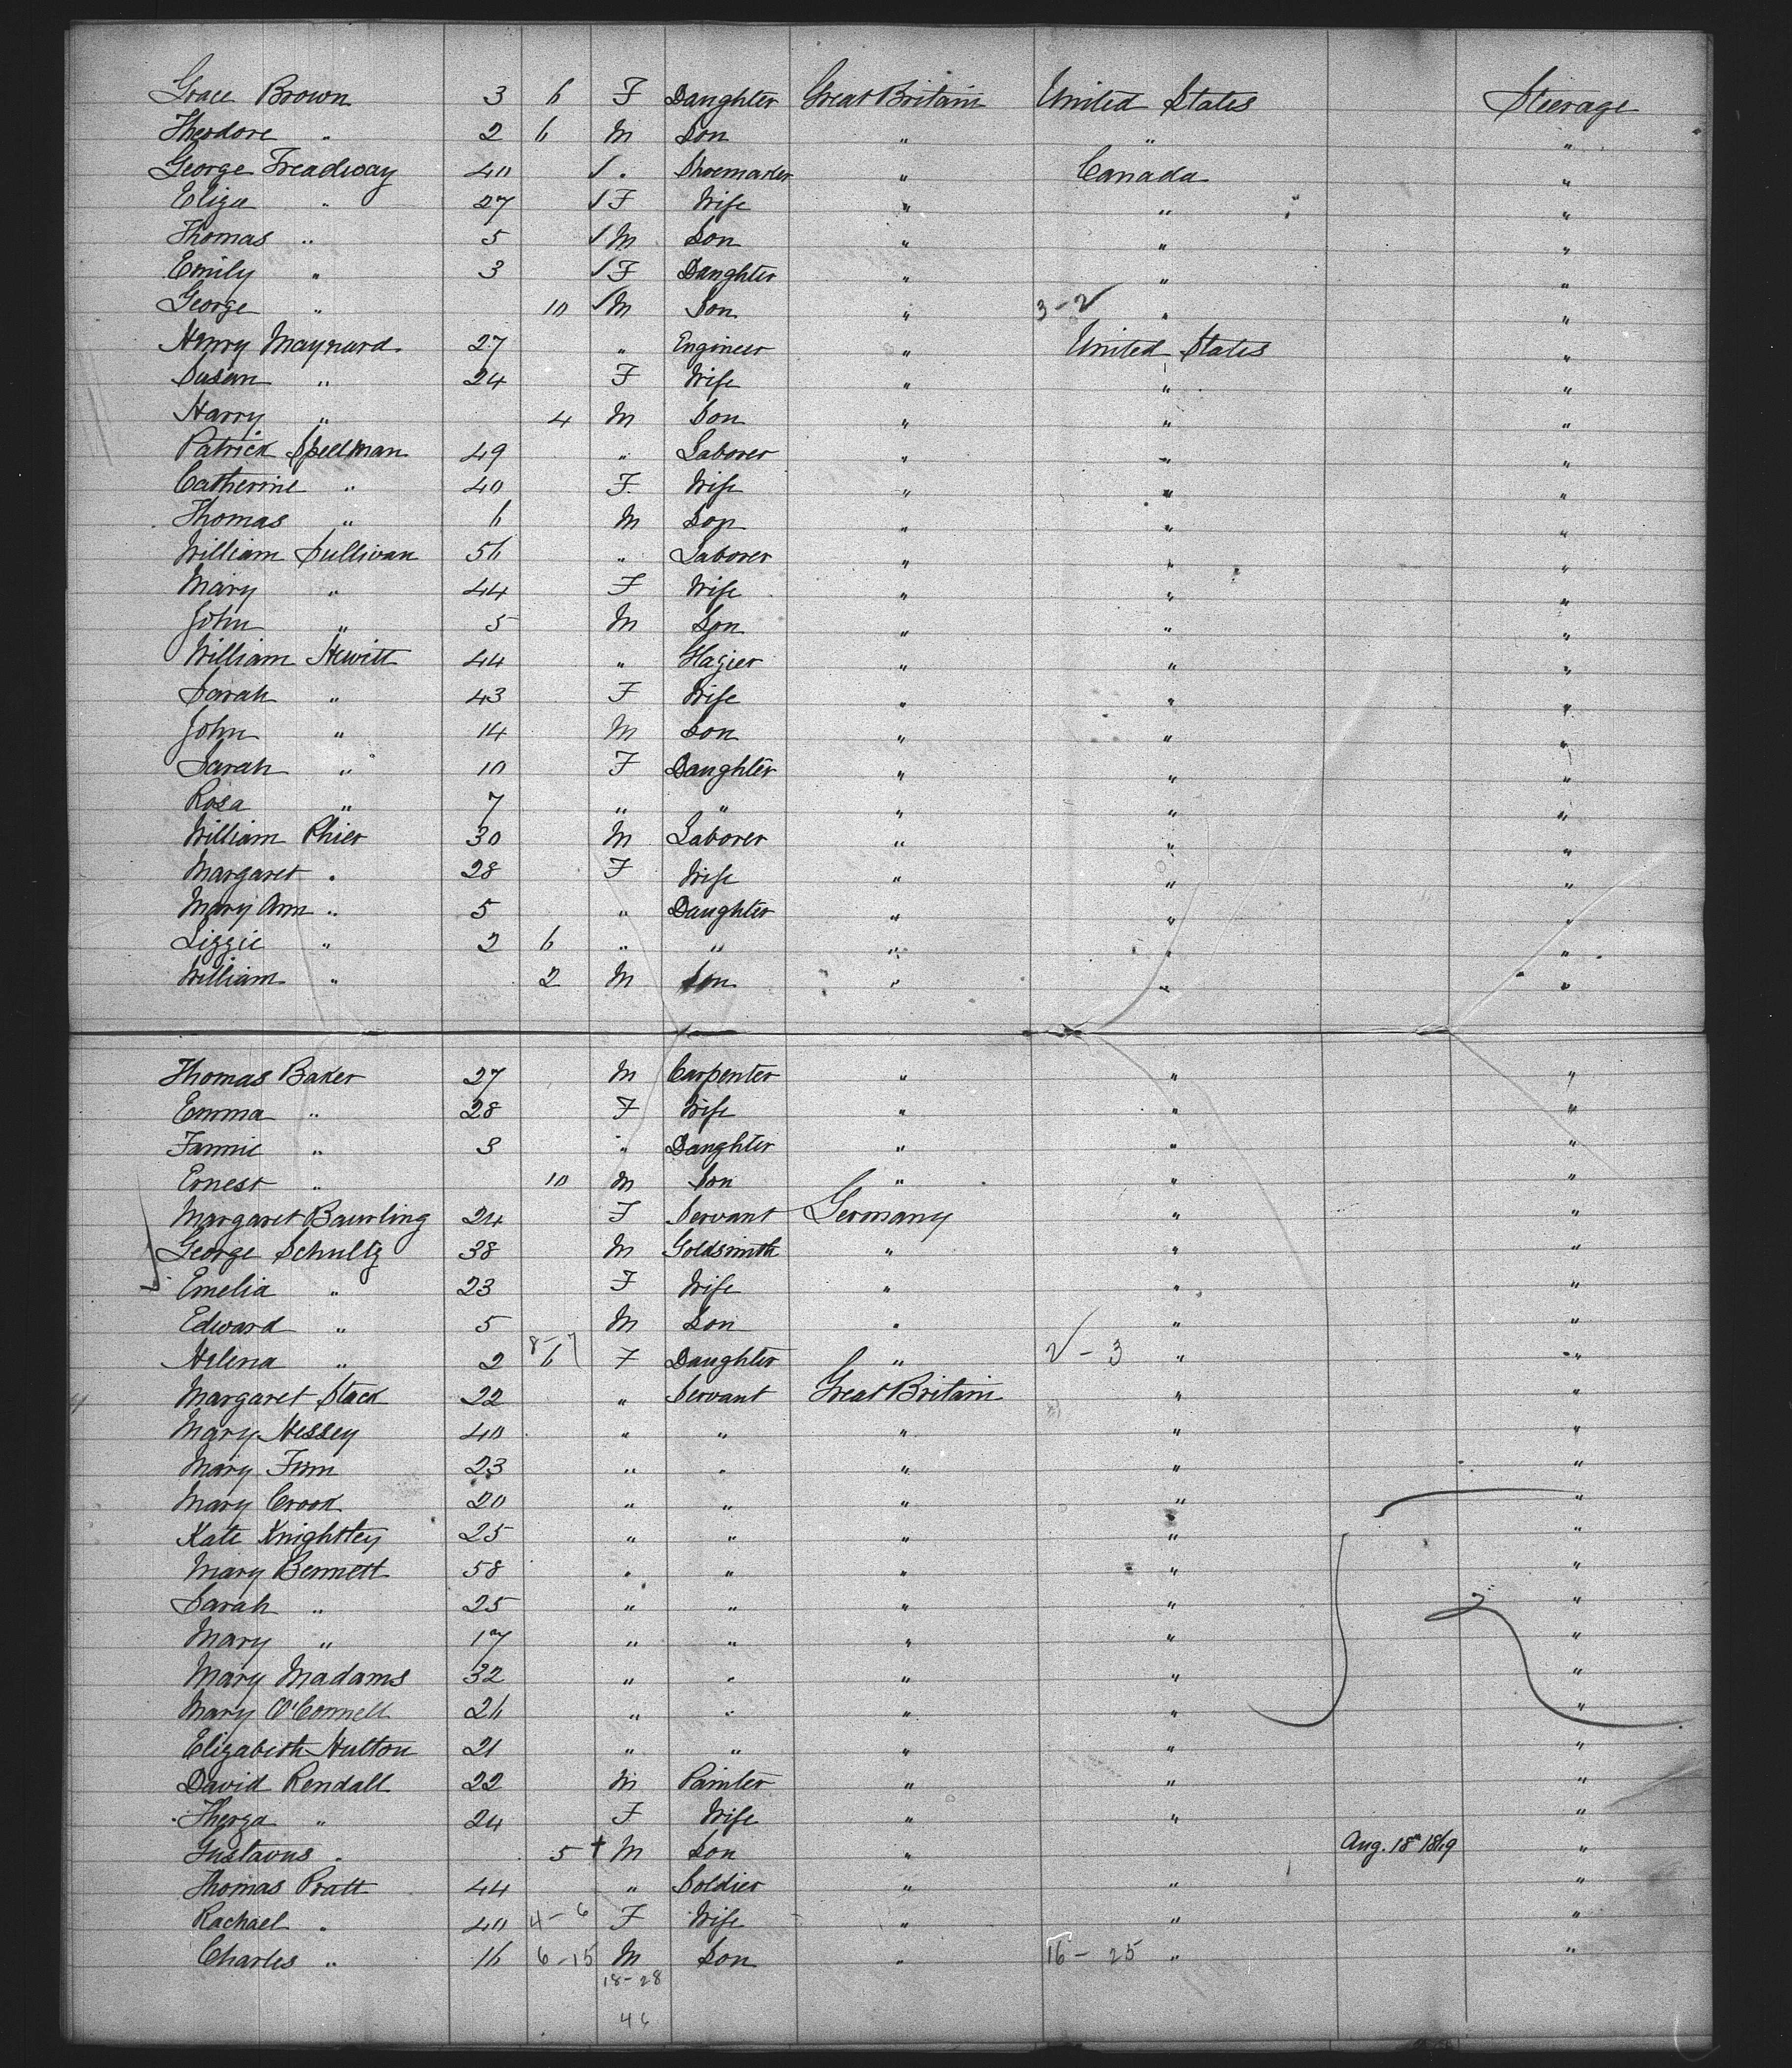 Grace Brown 3 6 F Daughter Great Britain United States Steerage
Theodore " 2 6 M Son " " "
George Treadway 40 ✓ " Shoemaker " Canada "
Eliza " 27 ✓ F Wife " " "
Thomas " 5 ✓ M Son " " "
Emily " 3 ✓ F Daughter " " "
George " 10 ✓ M Son " 3-2 " "
Henry Maynard 27 " Engineer " United States "
Susan " 24 F Wife " " "
Harry " 4 M Son " " "
Patrick Spellman 49 " Laborer " " "
Catherine " 40 F Wife " " "
Thomas " 6 M Son " " "
William Sullivan 56 " Laborer " " "
Mary " 44 F Wife " " "
John " 5 M Son " " "
William Hewitt 44 " Glazier " " "
Sarah " 43 F Wife " " "
John " 14 M Son " " "
Sarah " 10 F Daughter " " "
Rosa " 7 " " " " "
William Phier 30 M Laborer " " "
Margaret " 28 F Wife " " "
Mary Ann " 5 " Daughter " " "
Lizzie " 2 6 " " " " "
William " 2 M Son " " "
Thomas Baker 27 M Carpenter " " "
Emma " 28 F Wife " " "
Fannie " 3 " Daughter " " "
Ernest " 10 M Son " " "
Margaret Baurling 24 F Servant Germany " "
George Schultz 38 M Goldsmith " " "
Emelia " 23 F Wife " " "
Edward " 5 M Son " " "
Helena " 2 6 8-7 F Daughter " 2-3 " "
Margaret Stack 22 " Servant Great Britain " "
Mary Hessey 40 " " " " "
Mary Finn 23 " " " " "
Mary Crook 20 " " " " "
Kate Knightley 25 " " " " "
Mary Bennett 58 " " " " "
Sarah " 25 " " " " "
Mary " 17 " " " " "
Mary Madams 32 " " " " "
Mary O'Connell 26 " " " " "
Elizabeth Hulton 21 " " " " "
David Rendall 22 M Painter " " "
Therza " 24 F Wife " " "
Gustavus " 5 + M Son " Aug. 18th 1869 "
Thomas Pratt 44 " Soldier " " "
Rachael " 40 4-6 F Wife " " "
Charles " 16 6-15 M Son " 16-25 " "
18-28
46